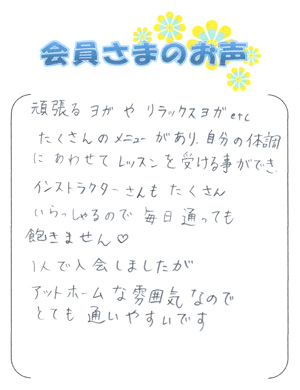 会員さまのお声
頑張るヨガやリラックスヨガetc
たくさんのメニューがあり、自分の体調
にあわせてレッスンを受ける事ができ、
インストラクターさんもたくさん
いらっしゃるので毎日通っても
飽きません♡
1人で入会しましたが
アットホームな雰囲気なので
とても通いやすいです